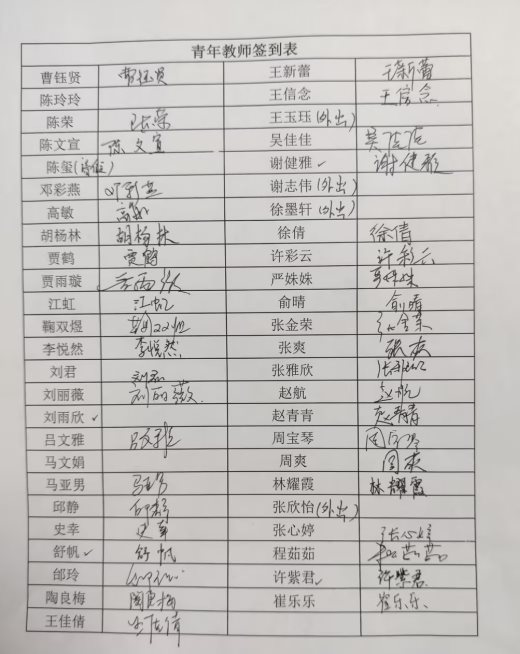 青年教师签到表
曹钰贤 曹钰贤 王新蕾 王新蕾
陈玲玲 王信念 王信念
陈荣 陈荣 王玉珏(外出)
陈文宣 陈文宣 吴佳佳 吴佳佳
陈玺( 假) 谢健雅✓ 谢健雅
邓彩燕 邓彩燕 谢志伟(外出)
高敏 高敏 徐墨轩(外出)
胡杨林 胡杨林 徐倩 徐倩
贾鹤 贾鹤 许彩云 许彩云
贾雨璇 贾雨璇 严姝姝 严姝姝
江虹 江虹 俞晴 俞晴
鞠双煜 鞠双煜 张金荣 张金荣
李悦然 李悦然 张爽 张爽
刘君 刘君 张雅欣 张雅欣
刘丽薇 刘丽薇 赵航 赵航
刘雨欣✓ 赵青青 赵青青
吕文雅 吕文雅 周宝琴 周宝琴
马文娟 周爽 周爽
马亚男 马亚男 林耀霞 林耀霞
邱静 邱静 张欣怡(外出)
史幸 史幸 张心婷 张心婷
舒帆✓ 舒帆 程茹茹 程茹茹
邰玲 许紫君✓ 许紫君
陶良梅 陶良梅 崔乐乐 崔乐乐
王佳倩 王佳倩